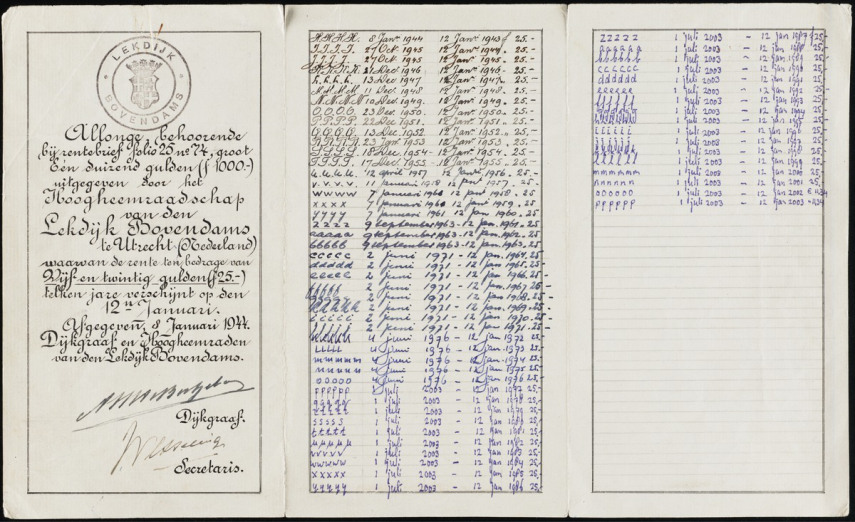 LEKDIJK
BOVENDAMS
Allonge, behoorende
bij rentebrief folio 25 no 74, groot
Een duizend gulden (ƒ 1000.-)
uitgegeven door het
Hoogheemraadschap
van den
Lekdijk Bovendams
te Utrecht (Nederland)
waarvan de rente ten bedrage van
Vijf-en twintig gulden (ƒ 25.-)
telken jare verschijnt op den
12n Januari.
Afgegeven, 8 Januari 1944.
Dijkgraaf en Hoogheemraden
van den Lekdijk Bovendams.
Dijkgraaf.
Secretaris.
H.H.H.H. 8 Janri 1944 12 Janri 1943 ƒ 25.-
I.I.I.I. 27 Oct. 1945 12 Janri 1944. 25.-
J.J.J.J. 27 Oct. 1945 12 Janri 1945. 25.-
K.K.K.K. 21 Dec. 1946 12 Janri 1946. 25.-
L.L.L.L. 13 Dec. 1947 12 Janri 1947. 25.-
M.M.M.M. 11 Dec. 1948 12 Janri 1948. 25.-
N.N.N.N. 10 Dec. 1949. 12 Janri 1949. 25.-
O.O.O.O. 23 Dec. 1950. 12 Janri 1950. 25.-
P.P.P.P. 22 Dec. 1951. 12 Janri 1951. 25.-
Q.Q.Q.Q. 13 Dec. 1952. 12 Janri 1952. 25.-
R.R.R.R. 23 Jan. 1953 12 Janri 1953. 25.-
S.S.S.S. 18 Dec. 1954 12 Janri 1954. 25.-
T.T.T.T. 17 Dec. 1955 12 Janri 1955. 25.-
u.u.u.u. 12 april 1957 12 Januari 1956. 25-
v.v.v.v. 11 januari 1958 12 januari 1957. 25-
wwww 7 januari 1960 12 januari 1958. 25
xxxx 7 januari 1960 12 januari 1959. 25-
yyyy 7 januari 1961 12 januari 1960. 25-
zzzz 9 september 1963 - 12 jan. 1961. 25-
aaaaa 9 september 1963 - 12 jan. 1962. 25-
bbbbb 9 september 1963 - 12 jan. 1963. 25-
ccccc 2 juni 1971 - 12 jan. 1964. 25-
ddddd 2 juni 1971 - 12 jan. 1965. 25-
eeeee 2 juni 1971 - 12 jan. 1966. 25-
fffff 2 juni 1971 - 12 jan. 1967. 25-
ggggg 2 juni 1971 - 12 jan. 1968. 25-
hhhhh 2 juni 1971 - 12 jan. 1969. 25-
iiiii 2 juni 1971 - 12 jan. 1970. 25-
2 juni 1971 - 12 jan. 1971. 25-
4 juni 1976 - 12 jan 1972 25-
lllll 4 juni 1976 - 12 jan 1973 25-
mmmmm 4 juni 1976 - 12 jan 1974 25-
nnnnn 4 juni 1976 - 12 jan 1975 25-
ooooo 4 juni 1976 - 12 jan 1976 25,-
ppppp 1 juli 2003 - 12 jan 1977 25,-
qqqqq 1 juli 2003 - 12 jan 1978 25,-
rrrrr 1 juli 2003 - 12 jan 1979 25,-
sssss 1 juli 2003 - 12 jan 1980 25,-
ttttt 1 juli 2003 - 12 jan 1981 25,-
uuuuu 1 juli 2003 - 12 jan 1982 25,-
vvvvv 1 juli 2003 - 12 jan 1983 25,-
wwwww 1 juli 2003 - 12 jan 1984 25,-
xxxxx 1 juli 2003 - 12 jan 1985 25,-
yyyyy 1 juli 2003 - 12 jan 1986 25,-
zzzzz 1 juli 2003 - 12 jan 1987 25,-
aaaaaa 1 juli 2003 - 12 jan 1988 25,-
bbbbbb 1 juli 2003 - 12 jan 1989 25,-
cccccc 1 juli 2003 - 12 jan 1990 25,-
dddddd 1 juli 2003 - 12 jan 1991 25,-
eeeeee 1 juli 2003 - 12 jan 1992 25,-
ffffff 1 juli 2003 - 12 jan 1993 25,-
gggggg 1 juli 2003 - 12 jan 1994 25,-
hhhhhh 1 juli 2003 - 12 jan 1995 25,-
iiiiii 1 juli 2003 - 12 jan 1996 25,-
jjjjjj 1 juli 2003 - 12 jan 1997 25,-
kkkkkk 1 juli 2003 - 12 jan 1998 25,-
llllll 1 juli 2003 - 12 jan 1999 25,-
mmmmmm 1 juli 2003 - 12 jan 2000 25,-
nnnnnn 1 juli 2003 - 12 jan 2001 25,-
oooooo 1 juli 2003 - 12 jan 2002 € 11,34
pppppp 1 juli 2003 - 12 jan 2003 € 11,34